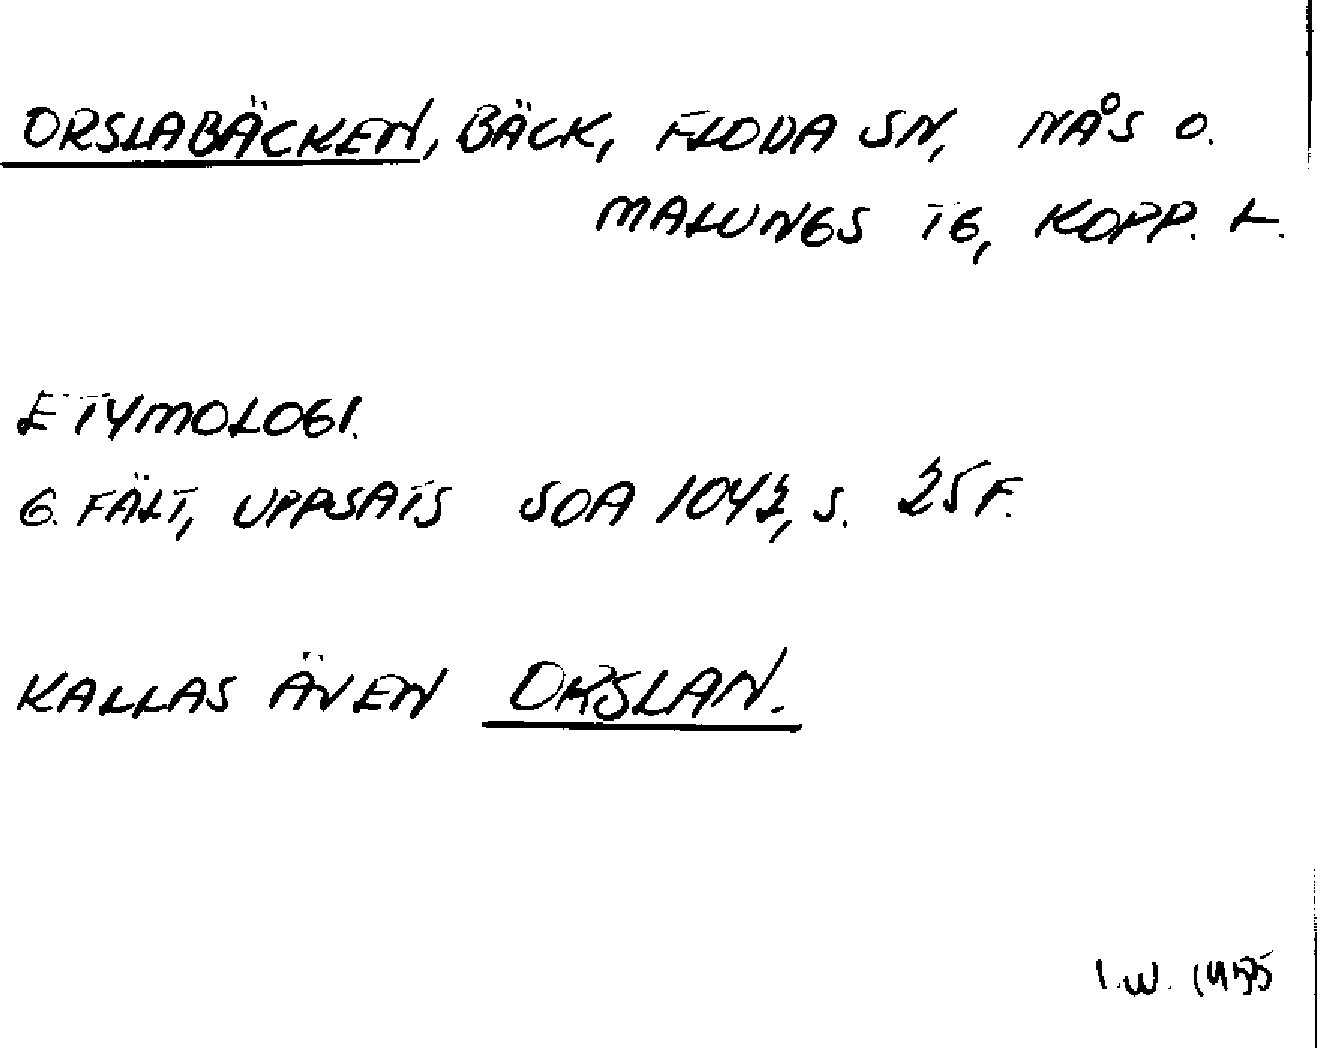 ORSLABÄCKEN, BÄCK, FLODA SN, NÅS O.
MALUNGS TG, KOPP. L.
ETYMOLOGI.
G. FÄLT, UPPSATS SOA 1042, S. 25 F.
KALLAS ÄVEN ORSLAN.
I.W.